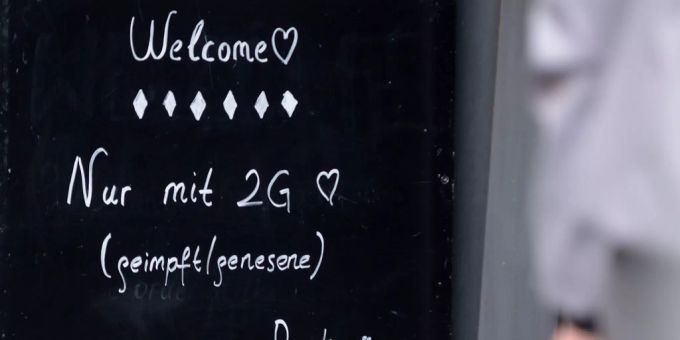 Welcome♡
Nur mit 2G ♡
(geimpft/genesene)